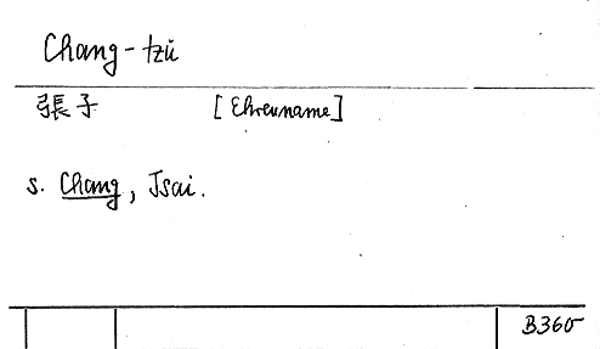 Chang-tzŭ
張子 [Ehrenname]
s. Chang, Tsai.
B360